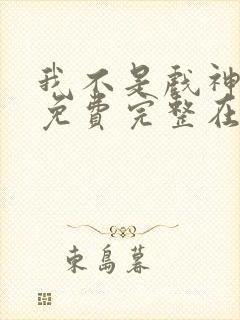 我不是戏神
免费完整在
東島暮